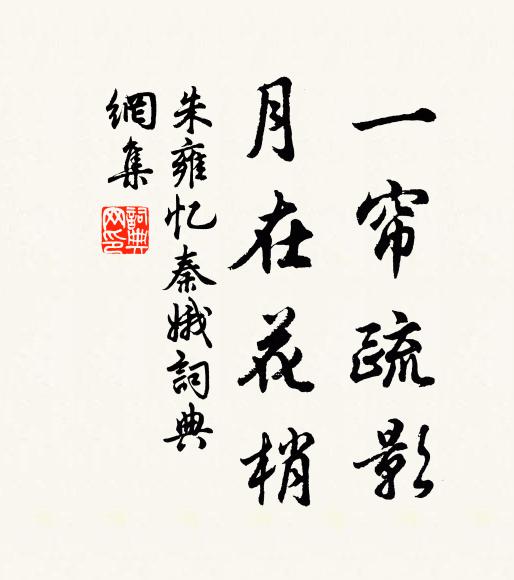 一帘疏影
月在花梢
朱雍忆秦娥詞典
網集
詞典网印